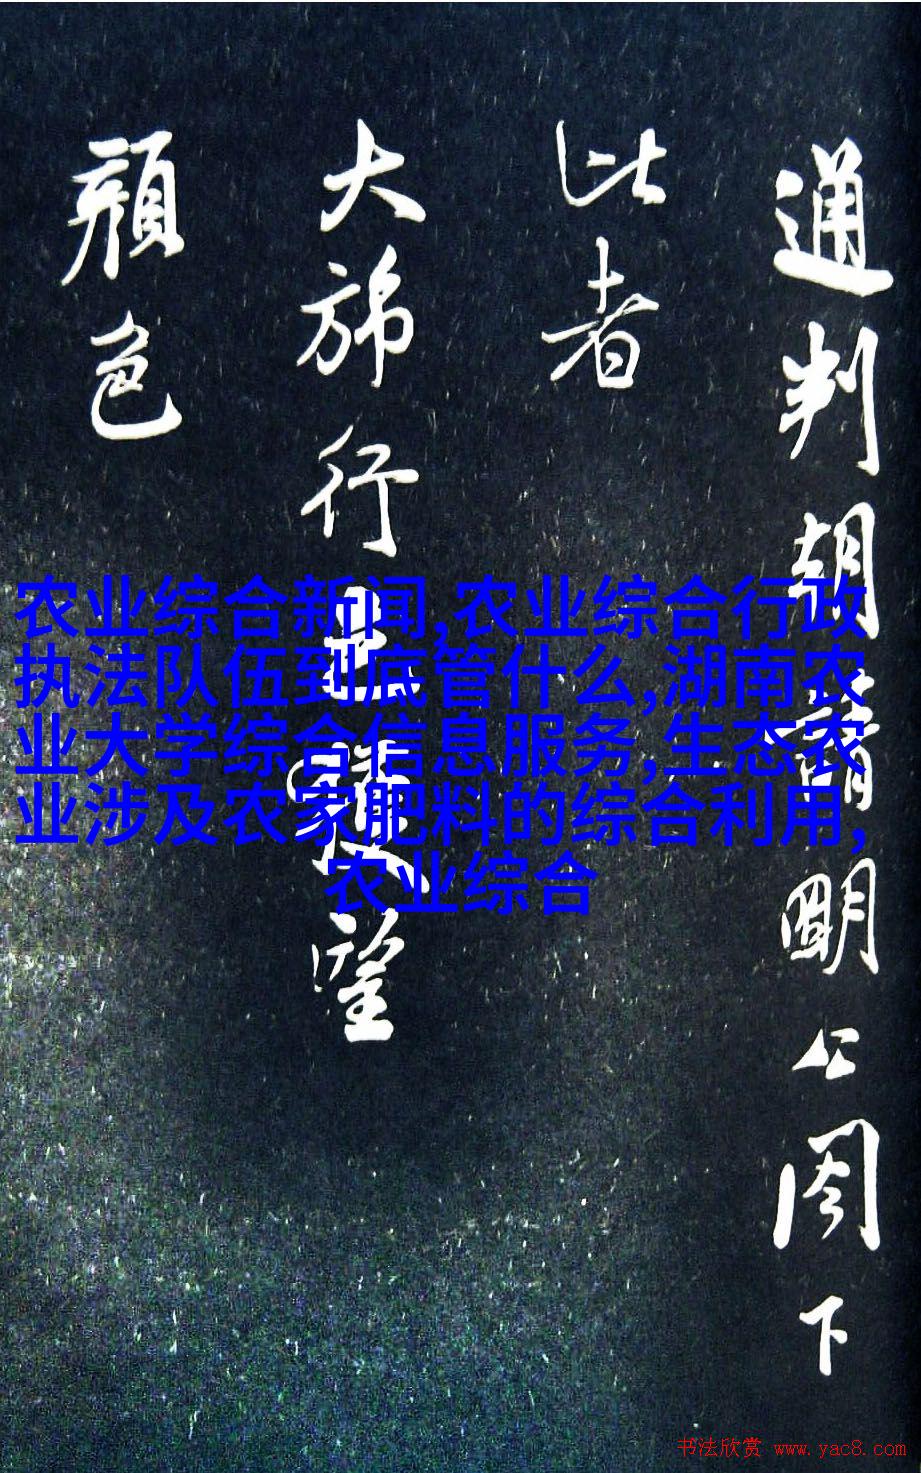 通判朝請明公閣下
此者
大旆行望
顏色
农业综合新闻,农业综合行政
执法队伍到底管什么,湖南农
业大学综合信息服务,生态农
业涉及农家肥料的综合利用,
农业综合
书法欣赏 www.yac8.com